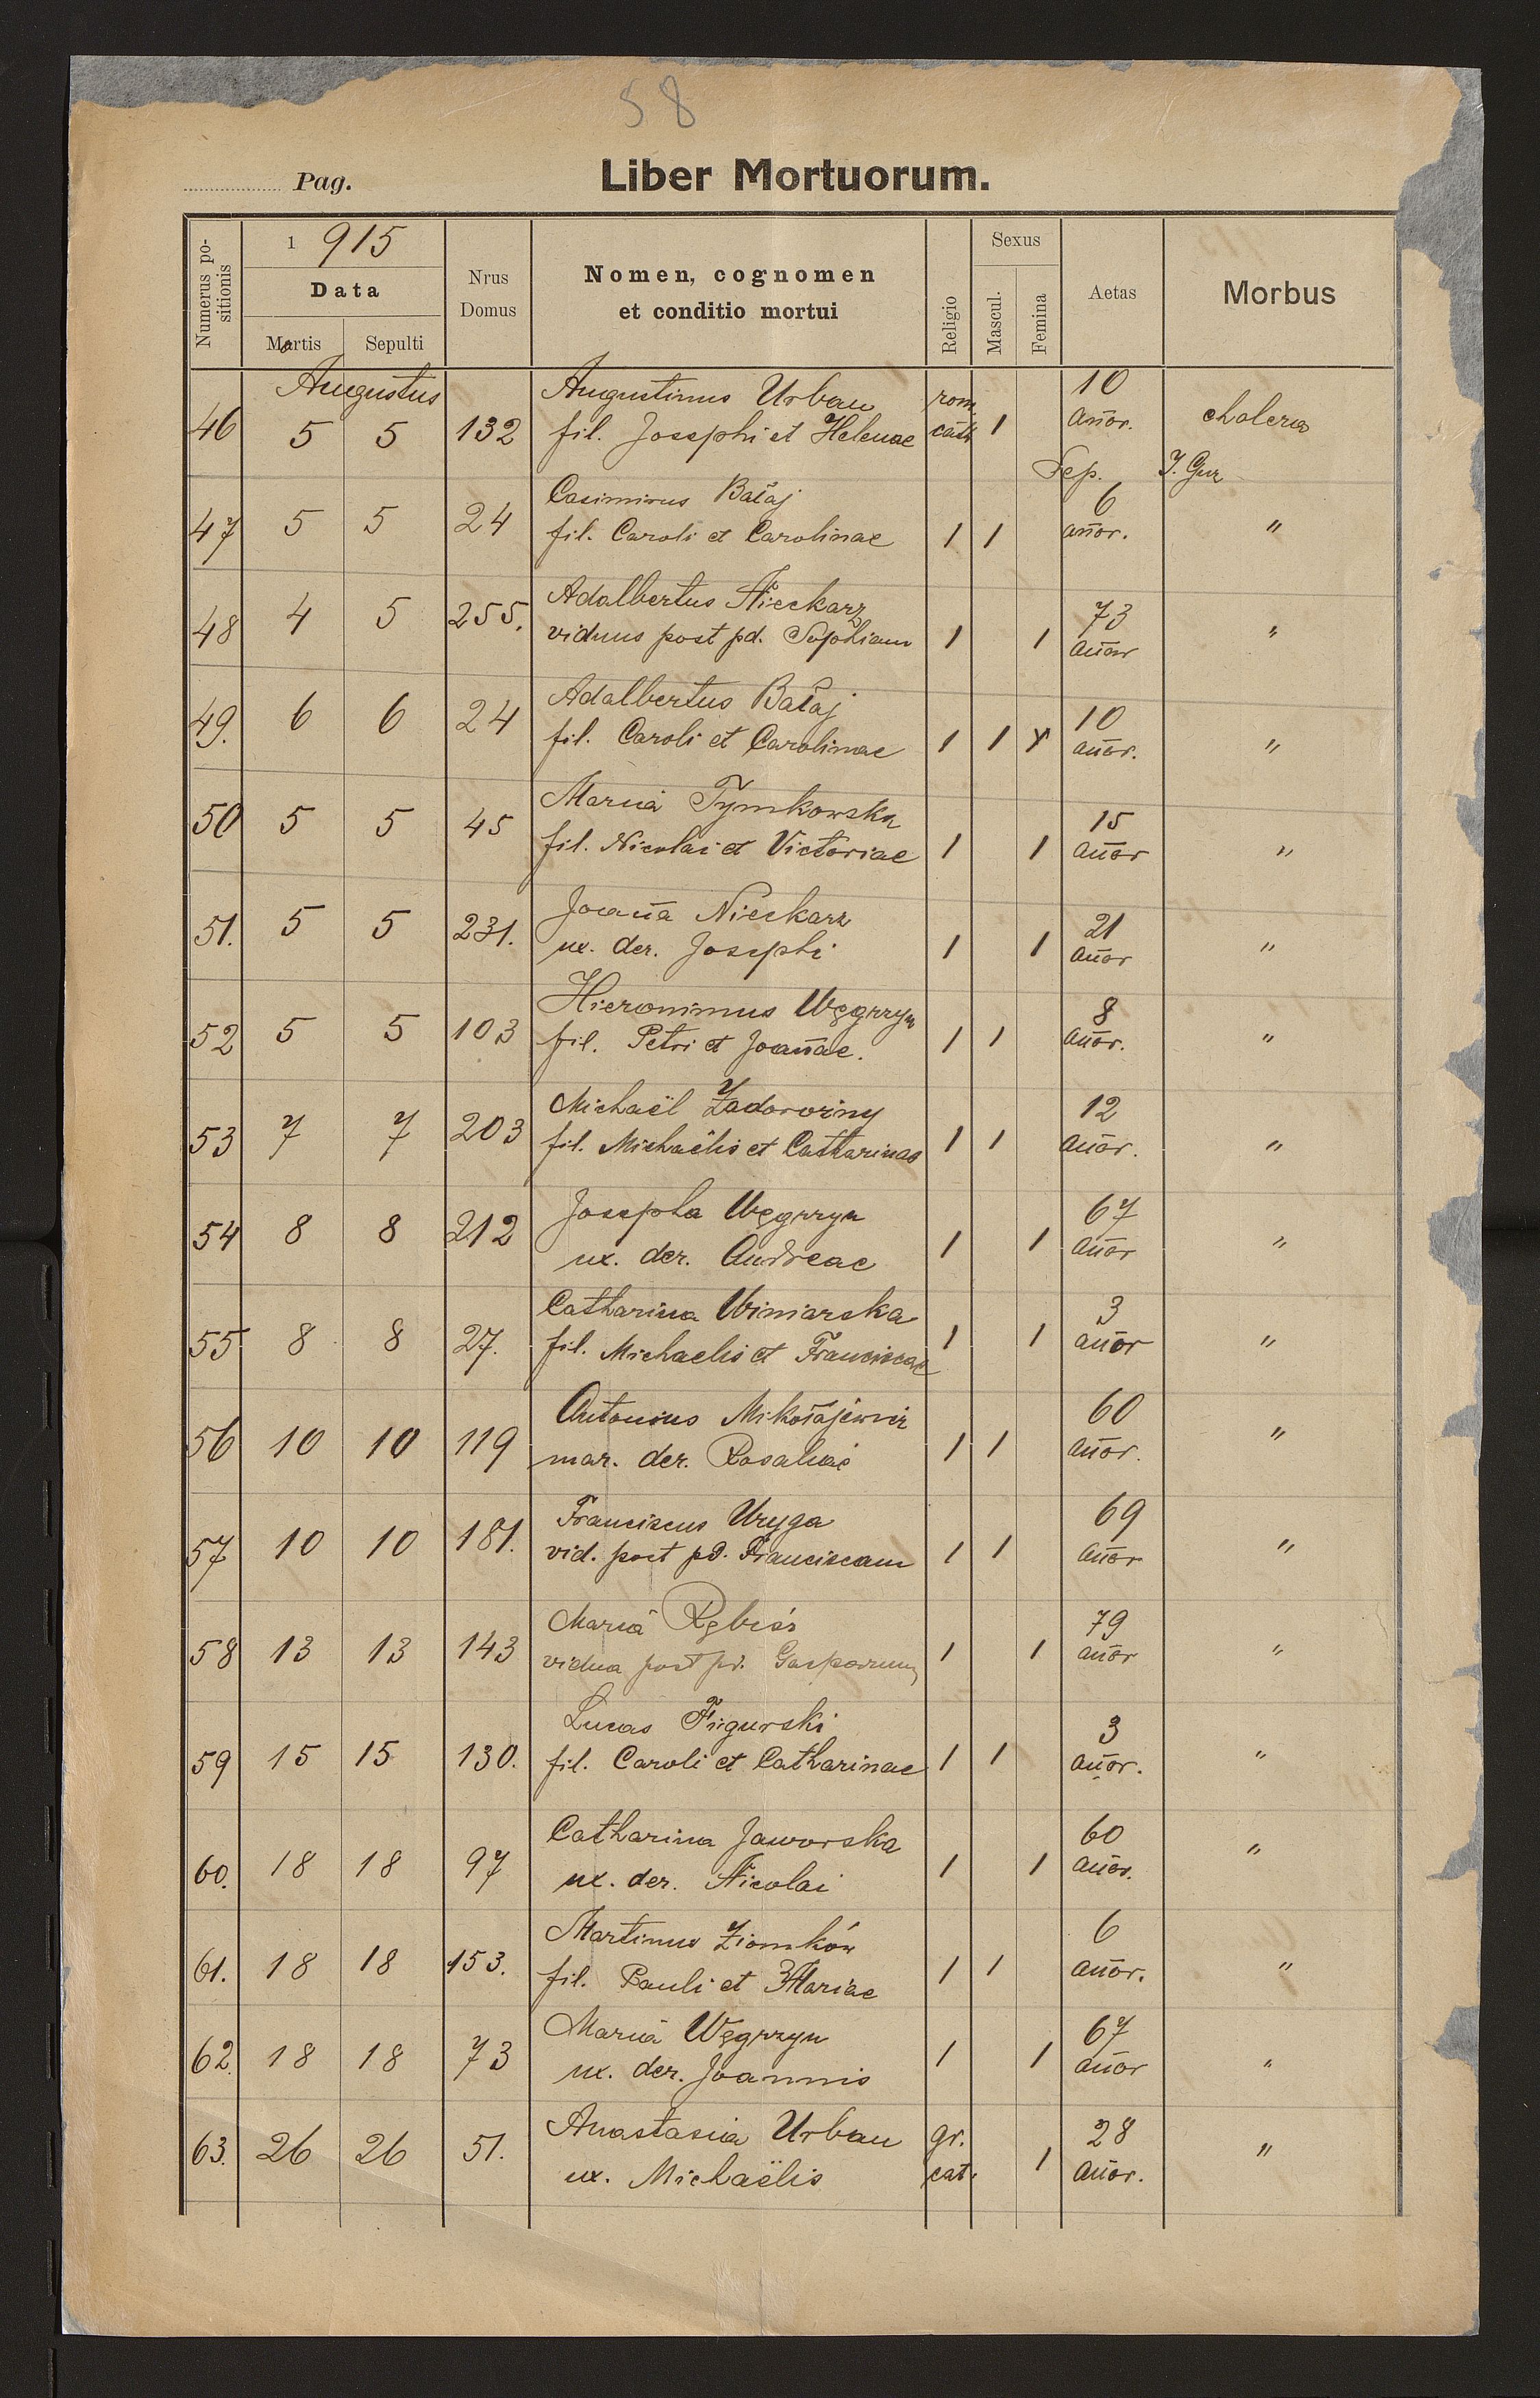 58
Pag. Liber Mortuorum.
Numerus positionis | 1 915 Data | Nrus Domus | Nomen, cognomen et conditio mortui | Religio | Sexus | Aetas | Morbus
Mortis | Sepulti | Mascul. | Femina
Augustus
Augustinus Urban rom. 10
46 5 5 132 fil. Josephi et Helenae cath 1 añor. cholera
Sep. J. Gur
Casimirus Bałaj 6
47 5 5 24 fil. Caroli et Carolinae 1 1 añor. "
Adalbertus Nieckarz 73
48 4 5 255. viduus post pd. Sophiam 1 1 añor "
Adalbertus Bałaj 10
49. 6 6 24 fil. Caroli et Carolinae 1 1 añor. "
Maria Tymkowska 15
50 5 5 45 fil. Nicolai et Victoriae 1 1 añor "
Joaña Nieckarz 21
51. 5 5 231. ux. der. Josephi 1 1 añor "
Hieronimus Węgrzyn 8
52 5 5 103 fil. Petri et Joañae. 1 1 añor. "
Michaël Zadorożny 12
53 7 7 203 fil. Michaëlis et Catharinae 1 1 añor. "
Josepha Węgrzyn 67
54 8 8 212 ux. der. Andreae 1 1 añor "
Catharina Winiarska 3
55 8 8 27. fil. Michaelis et Franciscae 1 1 añor "
Antonius Mikołajewicz 60
56 10 10 119 mar. der. Rosaliae 1 1 añor. "
Franciscus Uryga 69
57 10 10 181. vid. post pd. Franciscam 1 1 añor "
Maria Rębisz 79
58 13 13 143 vidua post pd. Gasparum 1 1 añor "
Lucas Figurski 3
59 15 15 130. fil. Caroli et Catharinae 1 1 añor. "
Catharina Jaworska 60
60. 18 18 97 ux. der. Nicolai 1 1 añor. "
Martinus Ziomków 6
61. 18 18 153. fil. Pauli et Mariae 1 1 añor. "
Maria Węgrzyn 67
62. 18 18 73 ux. der. Joannis 1 1 añor "
Anastasia Urban gr. 28
63. 26 26 51. ux. Michaëlis cat. 1 añor. "